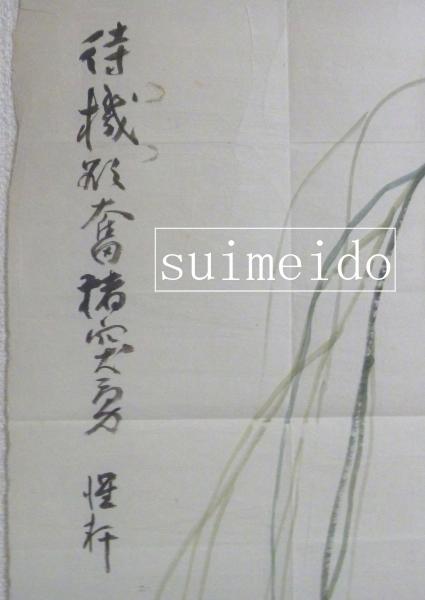 待機欲奮猪突勇 惺軒
suimeido